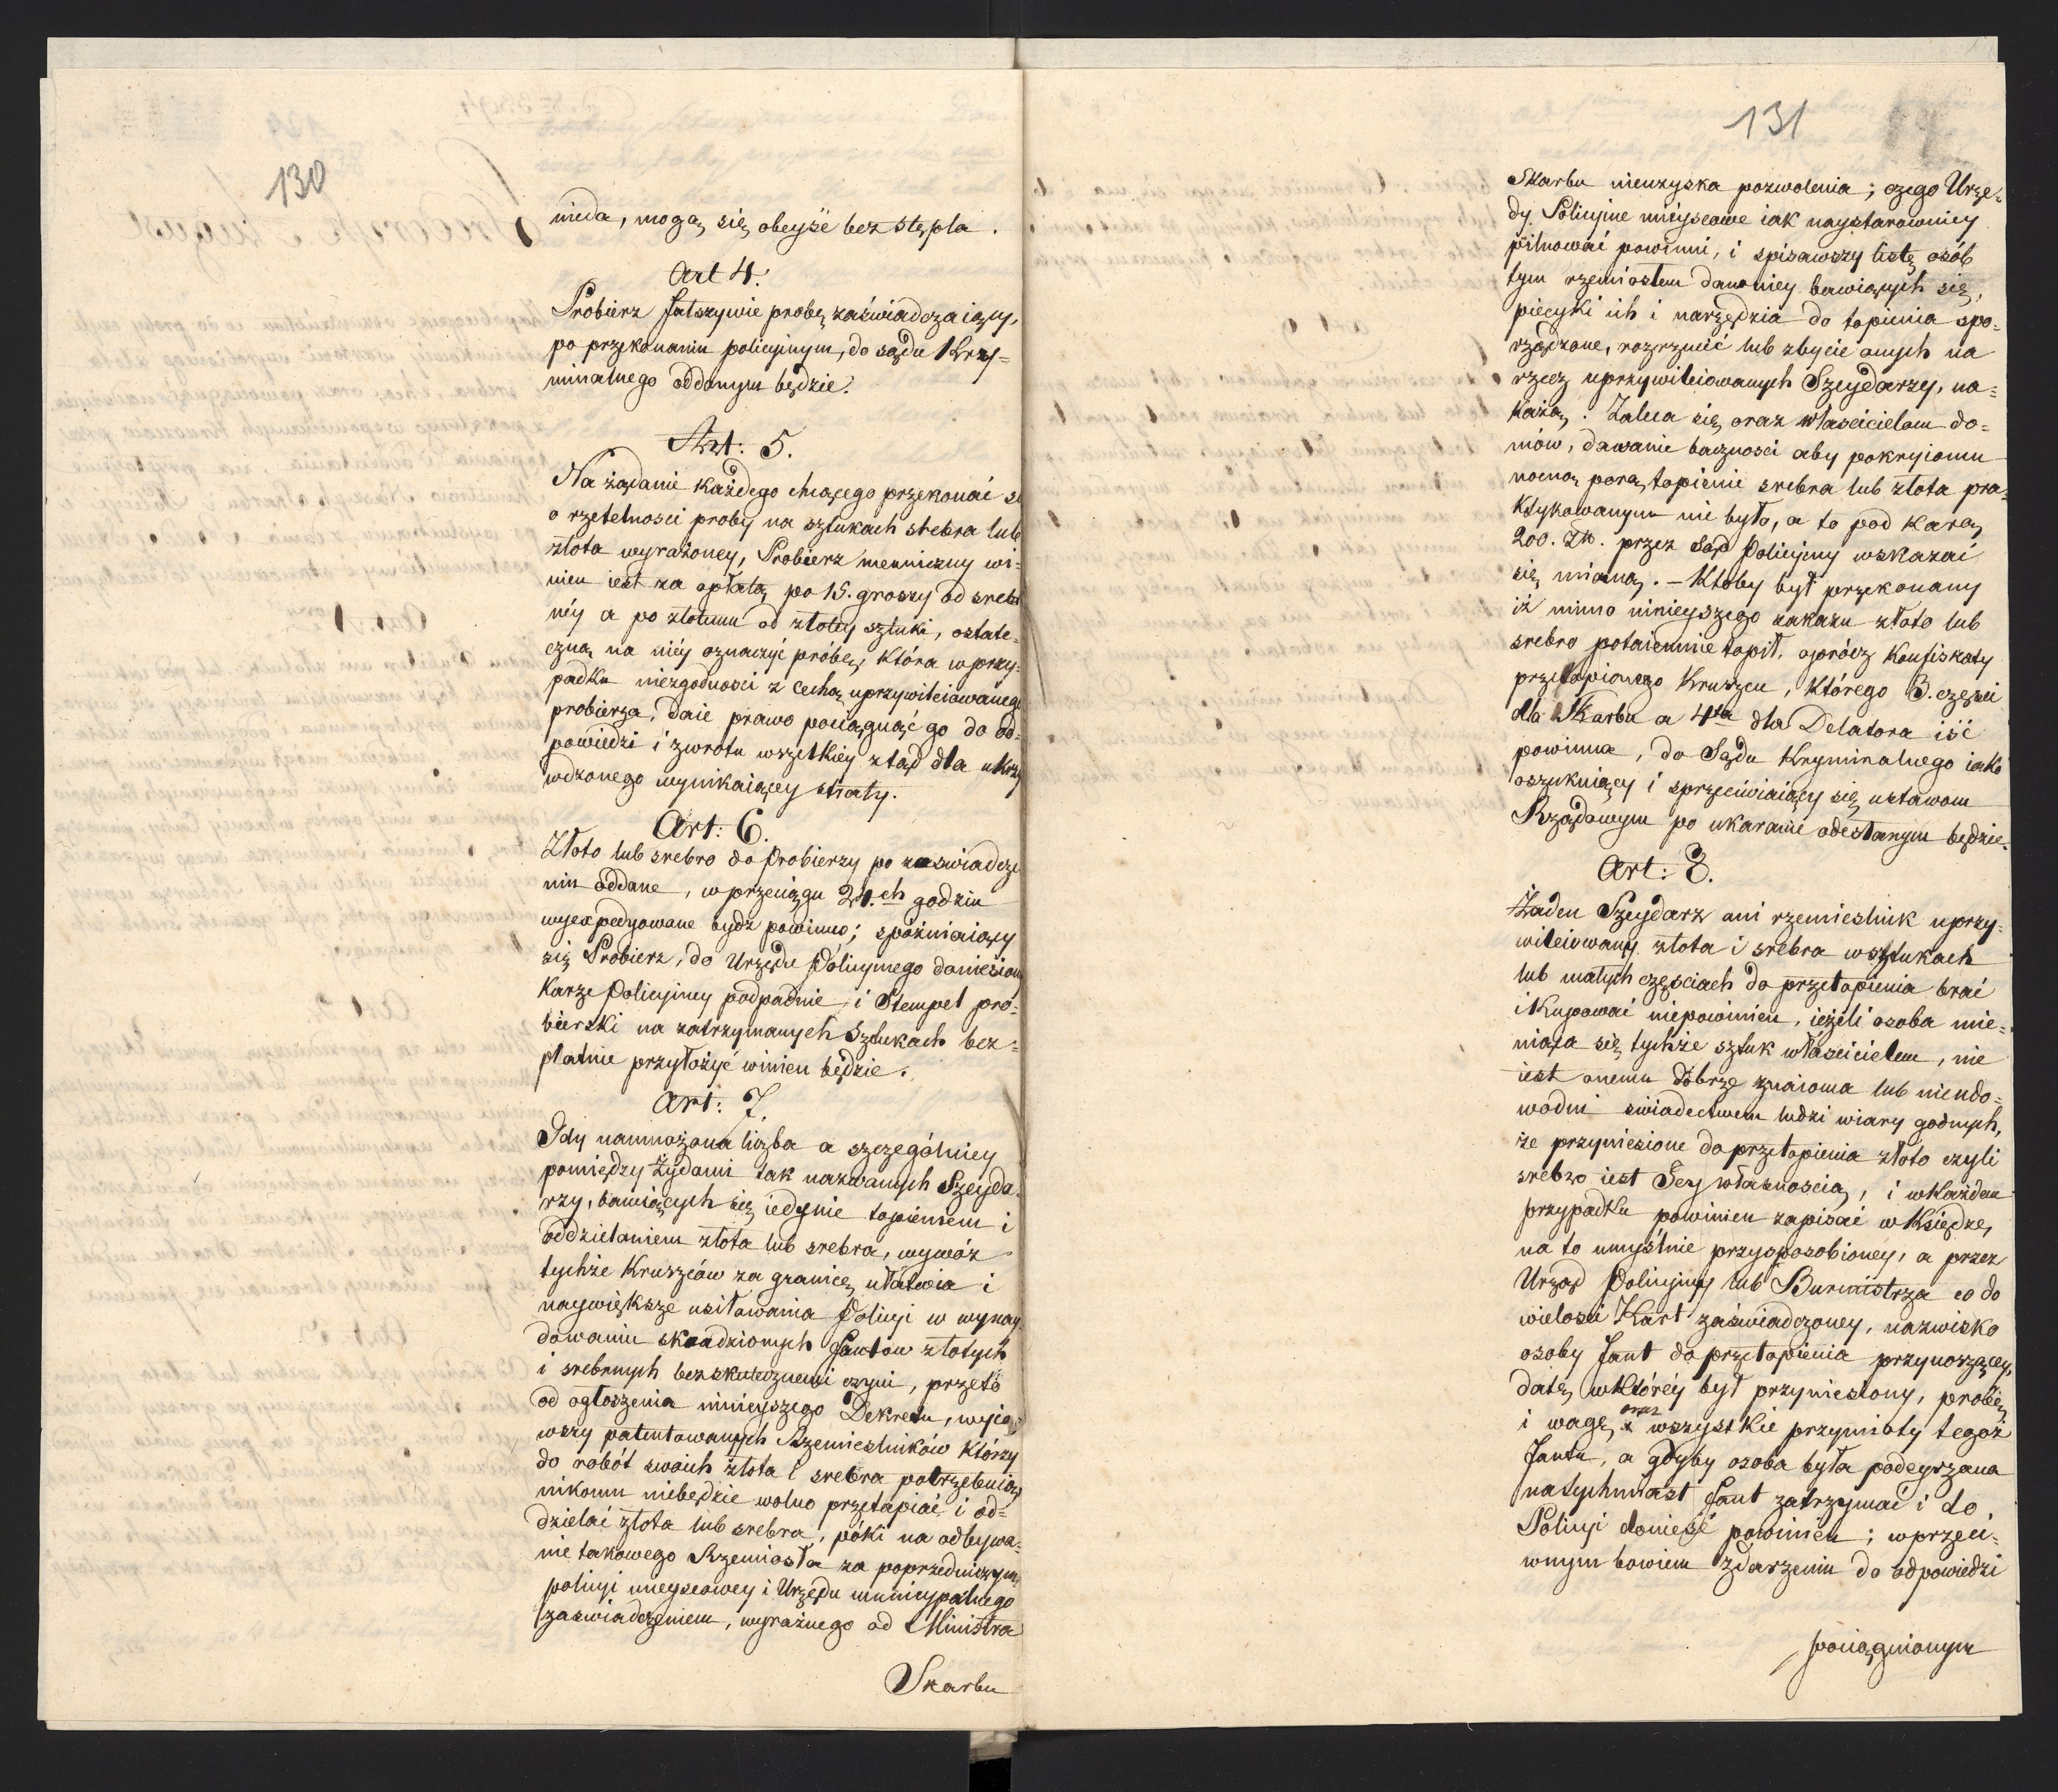 130
nieda, mogą się obeyść bez stępla.
Art 4.
Probierz fałszywie probę zaświadczaiący,
po przekonaniu policyjnym, do sądu Kry=
minalnego oddanym będzie.
Art: 5.
Na żądanie każdego chcącego przekonać się
o rzetelnosci proby na sztukach srebra lub
złota wyrażoney, Probierz menniczny wi=
nien iest za opłatą po 15. groszy od srebr
néy a po złotemu od złotey sztuki, ostate=
czną na niéy oznaczyć probę, która w przy=
padku niezgodnosci z cechą uprzywileiowanego
probierza, daie prawo pociągnąć go do od=
powiedzi i zwrotu wszelkiey ztąd dla ukrzy
wdzonego wynikaiącey straty.
Art: 6.
Złoto lub srebro do Probierzy po zaswiadcze
niu oddane, w przeciągu 24.ch godzin
wyexpedyowane bydz powinno; spoźniaiący
się Probierz, do Urzędu Policyjnego doniesiony
Karze Policyiney podpadnie i Stempel pro=
bierski na zatrzymanych Sztukach bez=
płatnie przyłożyć winien będzie.
Art: 7.
Gdy namnożona liczba a szczególniey
pomiędzy żydami tak nazwanych Szeyda=
rzy, bawiących się iedynie topieniem i
oddzielaniem złota lub srebra, wywóz
tychże Kruszców za granicę ułatwia i
naywiększe usiłowania Policyi w wynay
dowaniu skradzionych fantów złotych
i srebrnych bezskutecznemi czyni, przeto
od ogłoszenia ninieyszego Dekretu, wyią=
wszy patentowanych Rzemieslników którzy
do robót swoich złota i srebra potrzebuią,
nikomu niebędzie wolno przetapiać i od=
dzielać złota lub srebra, póki na odbywa=
nie takowego Rzemiosła za poprzedniczym
policyi mieyscowey i Urzędu municypalnego
zaswiadczeniem, wyraźnego od Ministra
Skarbu
131
Skarbu nieuzyska pozwolenia; czego Urzę=
dy Policyjne mieyscowe iak naystarowniey
pilnować powinni, i spisawszy listę osób
tym rzemiosłem dawniey bawiących się,
piecyki ich i narzędzia do topienia spo=
rządzone, rozrzucić lub zbycie onych na
rzecz uprzywileiowanych Szeydarzy, na=
każą. Zaleca się oraz właścicielom do=
mów, dawanie baczności aby pokryiomu
nocną porą topienie srebra lub złota pra=
ktykowanym nie było, a to pod karą
200. Zł. przez Sąd Policyjny wskazać
się mianą. – Ktoby był przekonany
iż mimo ninieyszego zakazu złoto lub
srebro potaiemnie topił, oprócz Konfiskaty
przetopionego Kruszcu, którego 3. części
dla Skarbu a 4ta dla Delatora iść
powinna, do Sądu Kryminalnego iako
oszukuiący i sprzeciwiaiący się ustawom
Rządowym po ukaranie odesłanym będzie.
Art: 8.
Żaden Szeydarz ani rzemieslnik uprzy=
wileiowany złota i srebra w sztukach
lub małych częściach do przetopienia brać
i Kupować niepowinien, ieżeli osoba mie=
niąca się tychże sztuk właścicielem, nie
iest onemu dobrze znaioma lub nieudo=
wodni swiadectwem ludzi wiary godnych,
że przyniesione do przetopienia złoto czyli
srebro iest Jey własnoscią, i w każdem
przypadku powinien zapisać w Księdze,
na to umyślnie przysposobioney, a przez
Urząd Policyjny lub Burmistrza co do
wielosci Kart zaświadczoney, nazwisko
osoby fant do przetopienia przynoszącey,
datę w któréy był przyniesiony, probę
i wagę, oraz wszystkie przymioty tegoż
fantu, a gdyby osoba była podeyrzana
natychmiast fant zatrzymać i do
Policyi donieść powinien; w przeci=
wnym bowiem zdarzeniu do odpowiedzi
pociągnionym